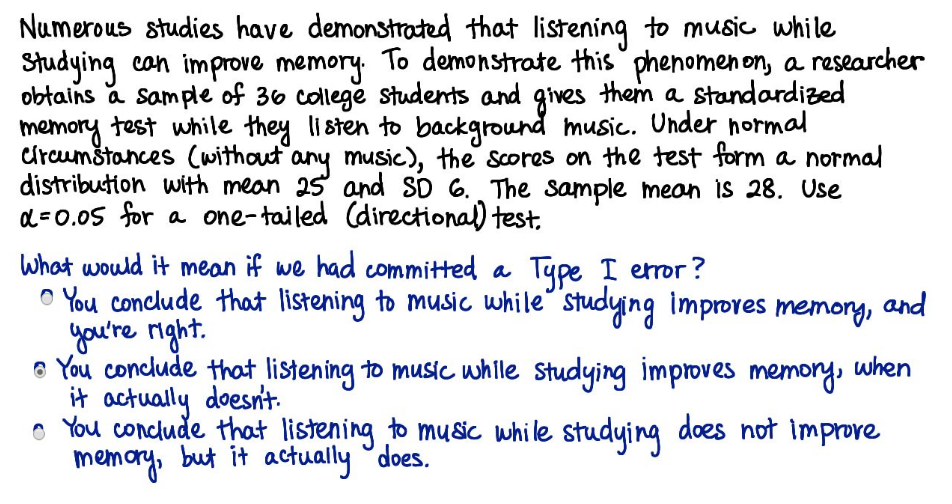 Numerous studies have demonstrated that listening to music while
studying can improve memory. To demonstrate this phenomenon, a researcher
obtains a sample of 36 college students and gives them a standardized
memory test while they listen to background music. Under normal
circumstances (without any music), the scores on the test form a normal
distribution with mean 25 and SD 6. The sample mean is 28. Use
α=0.05 for a one-tailed (directional) test.
What would it mean if we had committed a Type I error?
You conclude that listening to music while studying improves memory, and
you're right.
You conclude that listening to music while studying improves memory, when
it actually doesn't.
You conclude that listening to music while studying does not improve
memory, but it actually does.